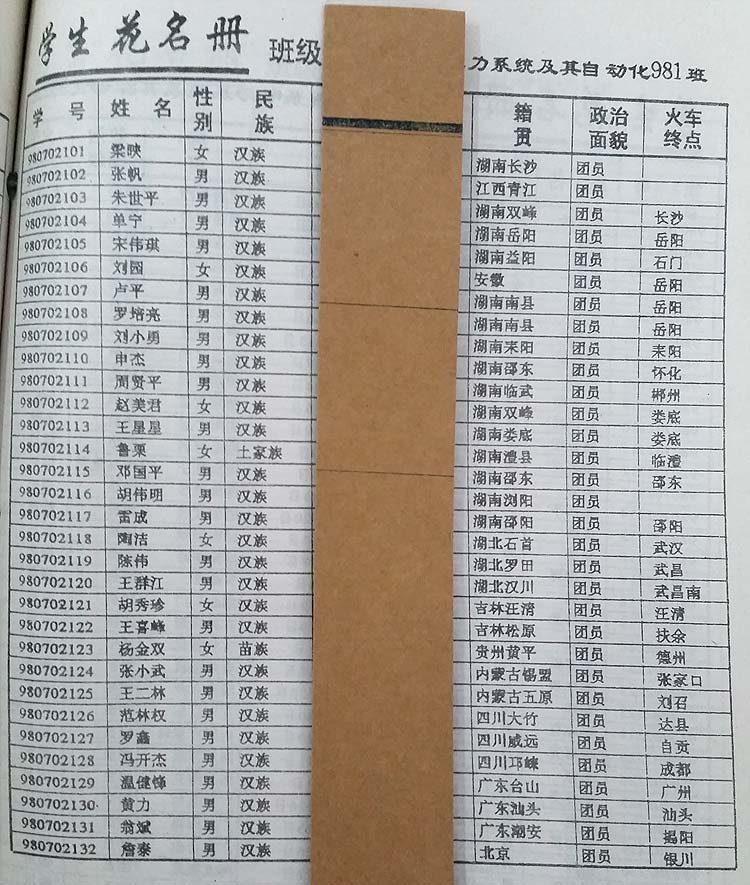 学生花名册 班级 力系统及其自动化981班
学号 姓名 性别 民族 籍贯 政治面貌 火车终点
980702101 梁映 女 汉族 湖南长沙 团员
980702102 张帆 男 汉族 江西青江 团员
980702103 朱世平 男 汉族 湖南双峰 团员 长沙
980702104 单宁 男 汉族 湖南岳阳 团员 岳阳
980702105 宋伟琪 男 汉族 湖南益阳 团员 石门
980702106 刘园 女 汉族 安徽 团员 岳阳
980702107 卢平 男 汉族 湖南南县 团员 岳阳
980702108 罗培亮 男 汉族 湖南南县 团员 岳阳
980702109 刘小勇 男 汉族 湖南耒阳 团员 耒阳
980702110 申杰 男 汉族 湖南邵东 团员 怀化
980702111 周贤平 男 汉族 湖南临武 团员 郴州
980702112 赵美君 女 汉族 湖南双峰 团员 娄底
980702113 王星星 男 汉族 湖南娄底 团员 娄底
980702114 鲁栗 女 土家族 湖南澧县 团员 临澧
980702115 邓国平 男 汉族 湖南邵东 团员 邵东
980702116 胡伟明 男 汉族 湖南浏阳 团员
980702117 雷成 男 汉族 湖南邵阳 团员 邵阳
980702118 陶洁 女 汉族 湖北石首 团员 武汉
980702119 陈伟 男 汉族 湖北罗田 团员 武昌
980702120 王群江 男 汉族 湖北汉川 团员 武昌南
980702121 胡秀珍 女 汉族 吉林汪清 团员 汪清
980702122 王喜峰 男 汉族 吉林松原 团员 扶余
980702123 杨金双 女 苗族 贵州黄平 团员 德州
980702124 张小武 男 汉族 内蒙古锡盟 团员 张家口
980702125 王二林 男 汉族 内蒙古五原 团员 刘召
980702126 范林权 男 汉族 四川大竹 团员 达县
980702127 罗鑫 男 汉族 四川威远 团员 自贡
980702128 冯开杰 男 汉族 四川邛崃 团员 成都
980702129 温健锋 男 汉族 广东台山 团员 广州
980702130 黄力 男 汉族 广东汕头 团员 汕头
980702131 翁斌 男 汉族 广东潮安 团员 揭阳
980702132 詹泰 男 汉族 北京 团员 银川